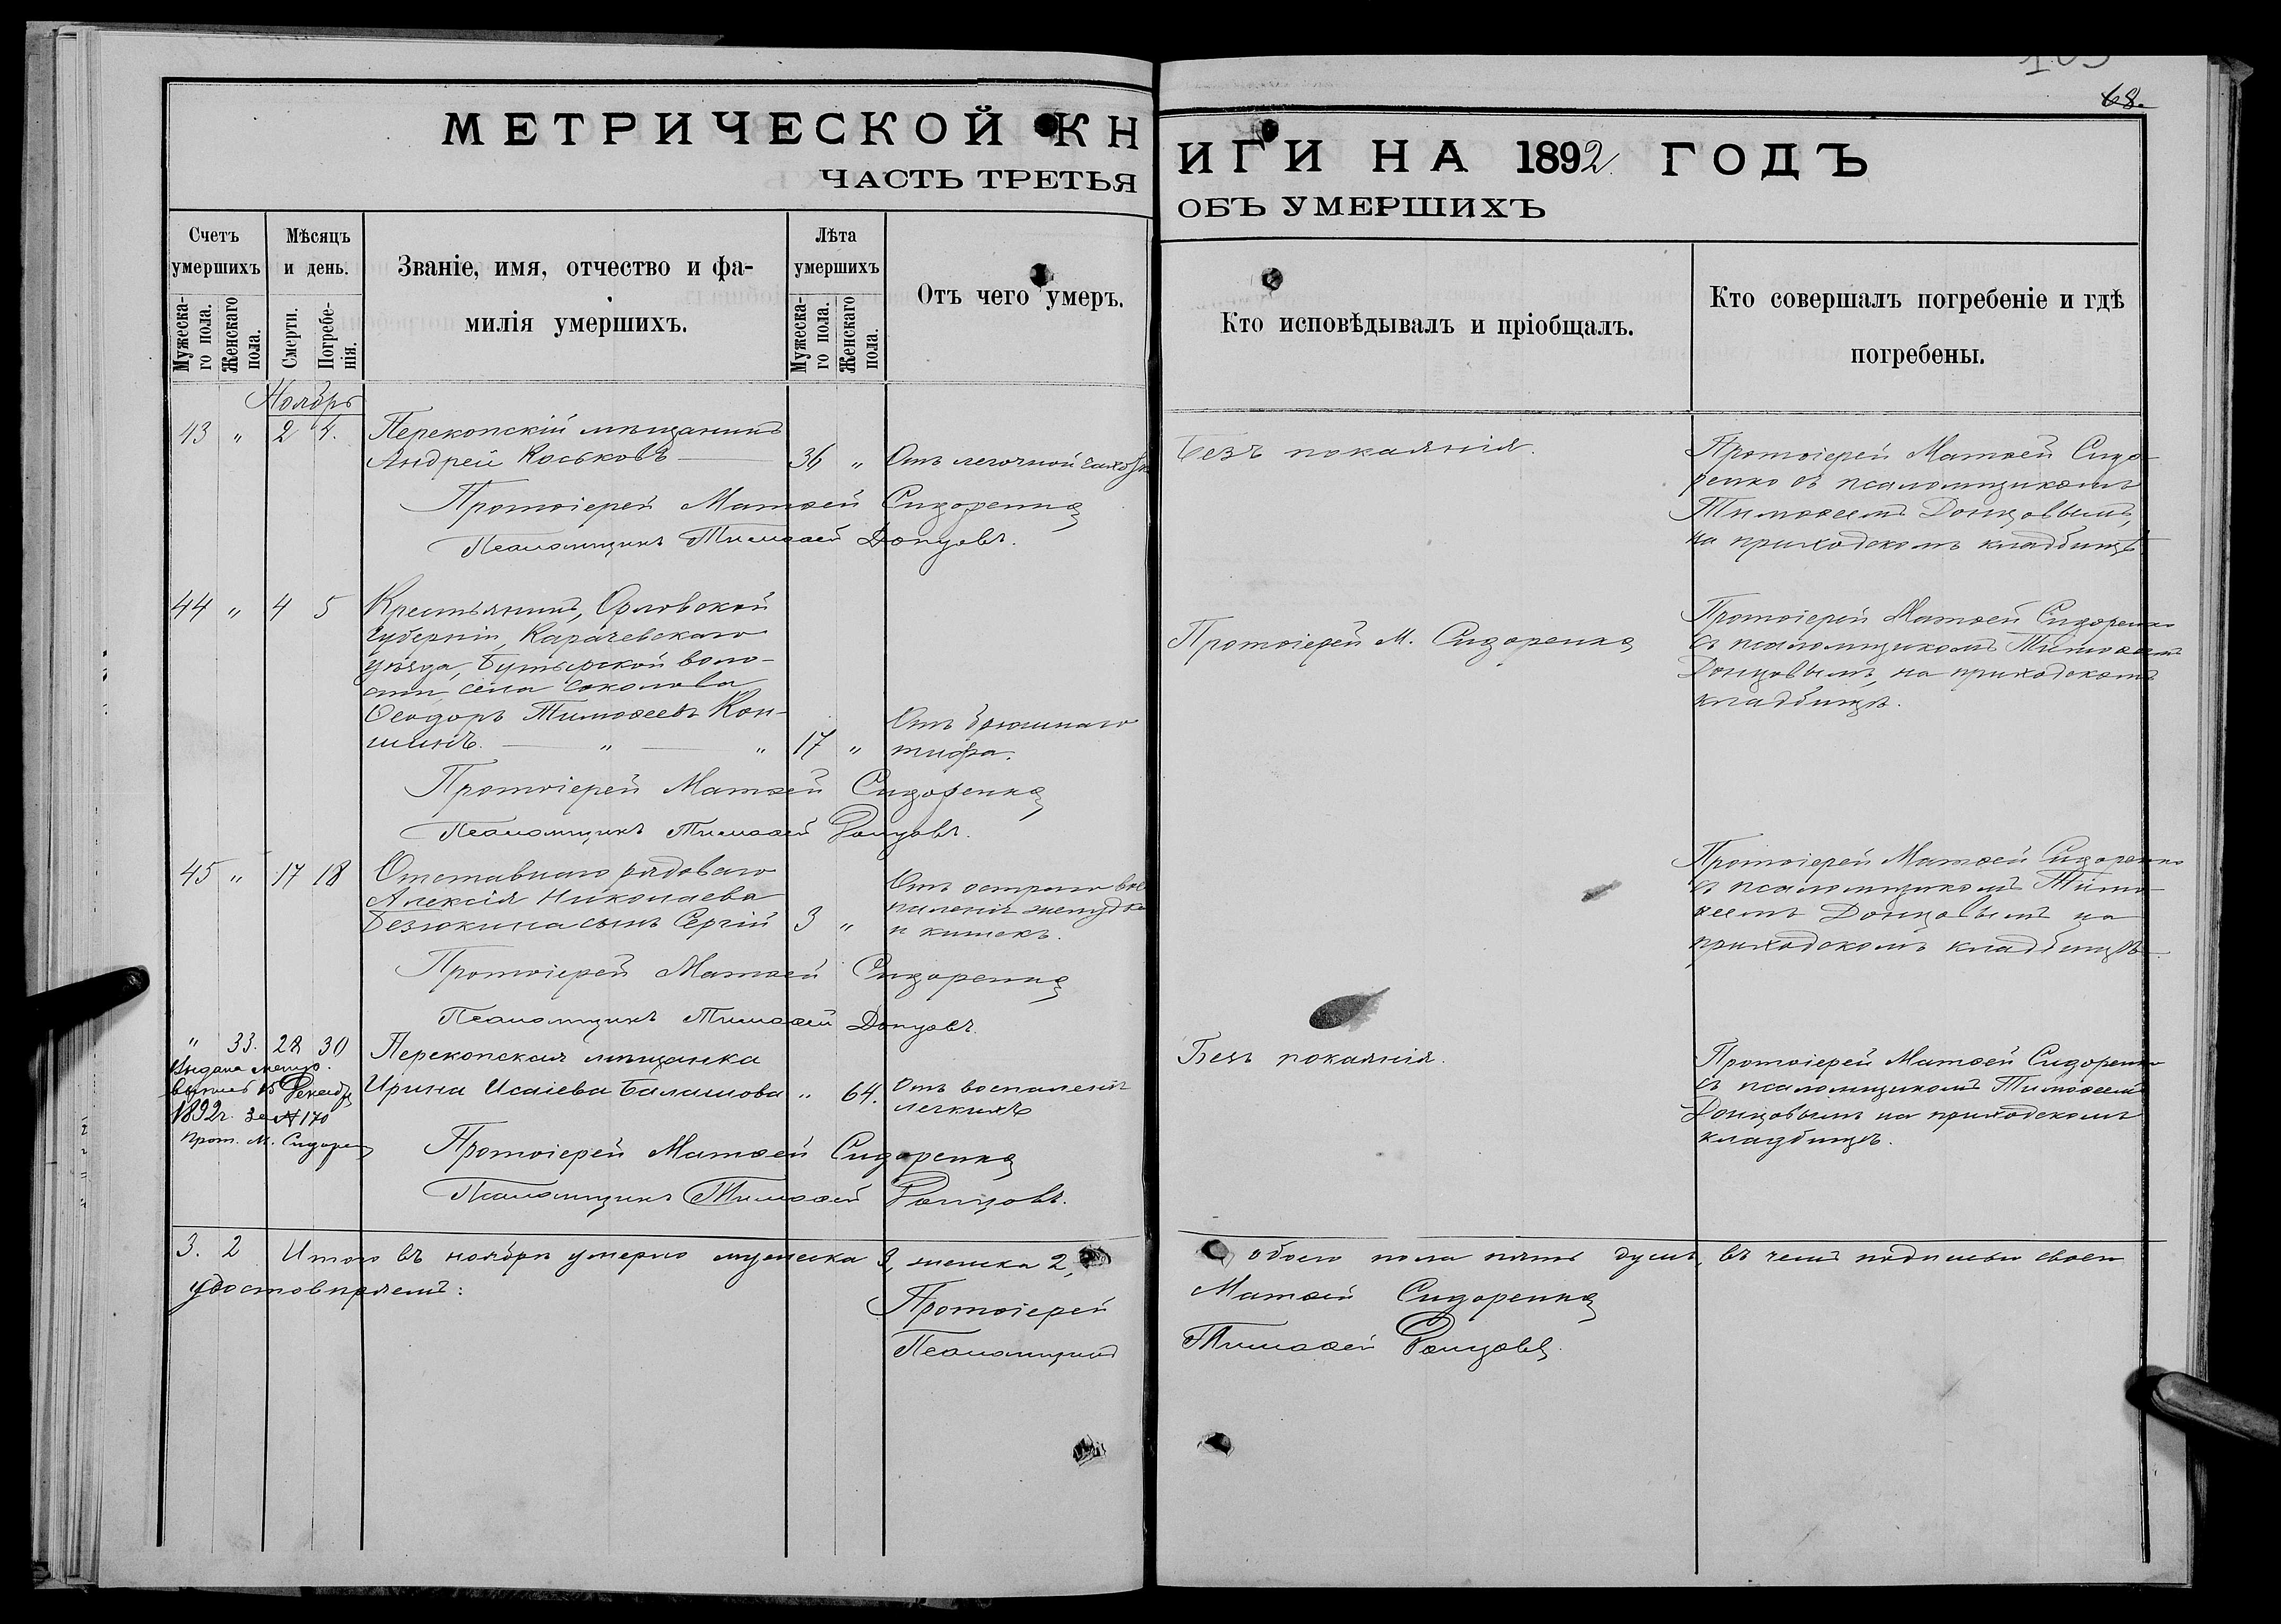 68.
МЕТРИЧЕСКОЙ КНИГИ НА 1892 ГОДЪ
ЧАСТЬ ТРЕТЬЯ ОБЪ УМЕРШИХЪ
Счетъ умершихъ
Мужеска-го пола.
Женскаго пола.
Мѣсяцъ и день.
Смерти.
Погребе-нія.
Званіе, имя, отчество и фа-
милія умершихъ.
Лѣта умершихъ
Мужеска-го пола.
Женскаго пола.
Отъ чего умеръ.
Кто исповѣдывалъ и пріобщалъ.
Кто совершалъ погребеніе и гдѣ
погребены.
Ноябрь
43 " 2 4.
Перекопскій мѣщанинъ
Андрей Коськовъ 36 " Отъ легочной
Безъ покаянія.
Протоіерей Матѳей Сидо-
ренко съ псаломщикомъ
Тимоѳеемъ Донцовымъ,
на приходскомъ кладбищѣ
Протоіерей Матѳей Сидоренко
Псаломщикъ Тимоѳей Донцовъ.
44 " 4 5
Крестьянинъ, Орловской
губерніи, Карачевскаго
уѣзда, Бутырской воло-
сти, села Соколова
Ѳеодоръ Тимоѳеевъ Кон-
шинъ. " " 17 "
Отъ брюшнаго
тифа.
Протоіерей М. Сидоренко
Протоіерей Матѳей Сидоренко
съ псаломщикомъ Тимоѳеемъ
Донцовымъ, на приходскомъ
кладбищѣ.
Протоіерей Матѳей Сидоренко
Псаломщикъ Тимоѳей Донцовъ.
45 " 17 18
Отставнаго рядоваго
Алексія Николаева
Безюкина сынъ Сергій 3 "
Отъ остраго вос
паленія желудка
и кишекъ.
Протоіерей Матѳей Сидоренко
съ псаломщикомъ Тимо-
ѳеемъ Донцовымъ на
приходскомъ кладбищѣ
Протоіерей Матѳей Сидоренко
Псаломщикъ Тимоѳей Донцовъ.
" 33. 28 30
Выдана метр.
выпись 15 Декабр
1892 г. за № 170
Прот. М. Сидорен
Перекопская мѣщанка
Ирина Исаіева Балашова " 64.
Отъ воспаленія
легкихъ
Безъ покаянія.
Протоіерей Матѳей Сидоренко
съ псаломщикомъ Тимоѳеемъ
Донцовымъ на приходскомъ
кладбищѣ.
Протоіерей Матѳей Сидоренко
Псаломщикъ Тимоѳей Донцовъ.
3. 2 Итого въ ноябрѣ умерло мужеска 3, женска 2, обоего пола пять душъ, въ чемъ подписью своею
удостовѣряемъ:
Протоіерей Матѳей Сидоренко
Псаломщикъ Тимоѳей Донцовъ.